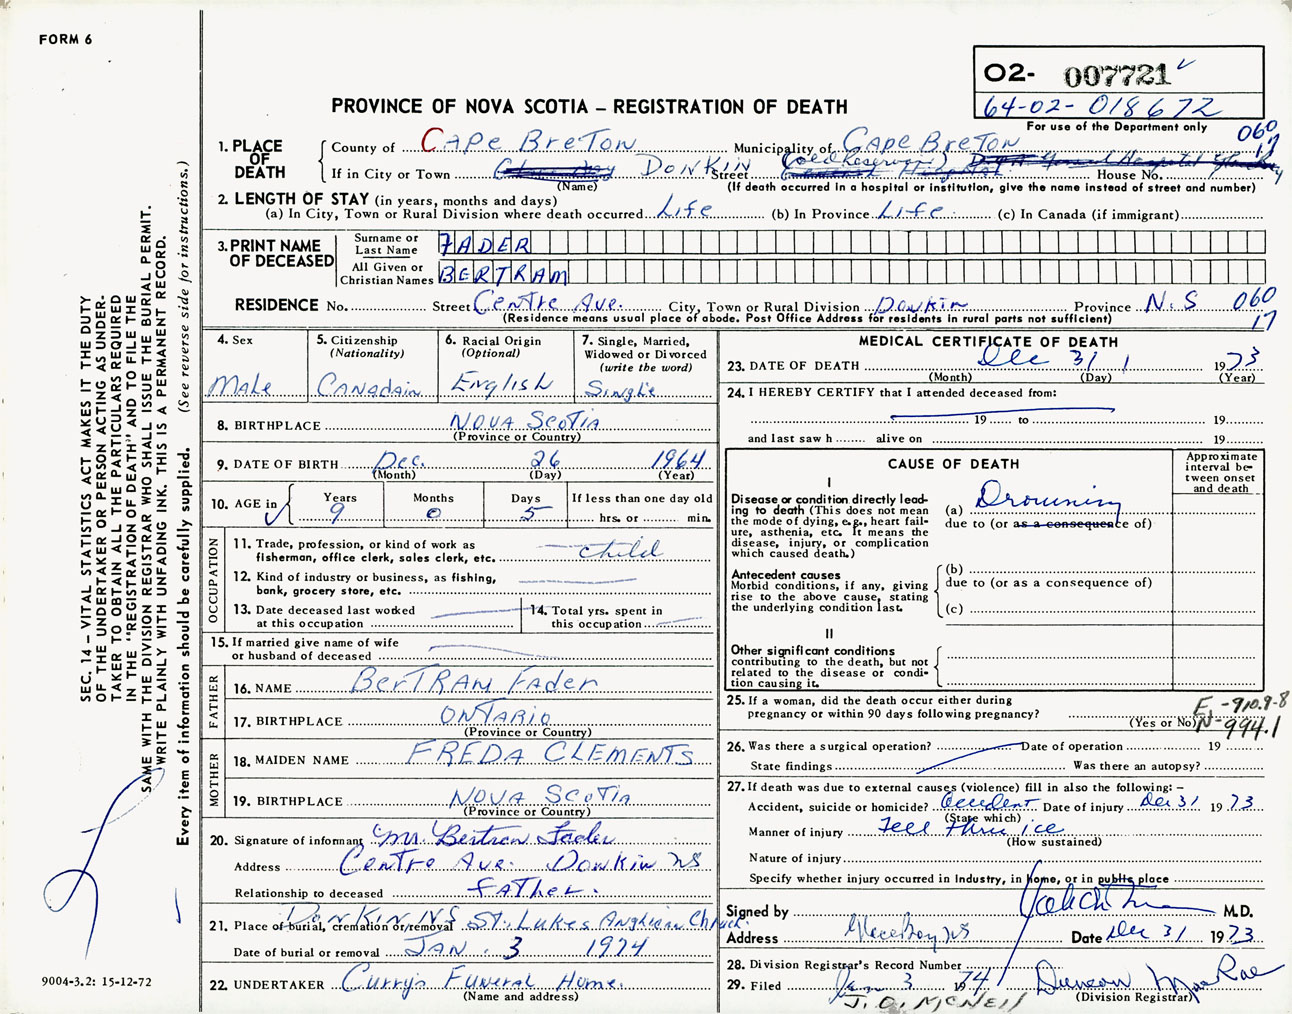 FORM 6
02- 007721
64-02- 018672
For use of the Department only
PROVINCE OF NOVA SCOTIA – REGISTRATION OF DEATH
060
17
1. PLACE OF DEATH
County of Cape Breton Municipality of Cape Breton
If in City or Town Donkin Street (old Reservoir) House No.
(Name) (If death occurred in a hospital or institution, give the name instead of street and number)
2. LENGTH OF STAY (in years, months and days)
(a) In City, Town or Rural Division where death occurred Life (b) In Province Life (c) In Canada (if immigrant)
3. PRINT NAME OF DECEASED
Surname or Last Name FADER
All Given or Christian Names BERTRAM
RESIDENCE No. Street Centre Ave. City, Town or Rural Division Donkin Province N.S 060
(Residence means usual place of abode. Post Office Address for residents in rural parts not sufficient) 17
4. Sex
Male
5. Citizenship
(Nationality)
Canadain
6. Racial Origin
(Optional)
English
7. Single, Married, Widowed or Divorced
(write the word)
Single
8. BIRTHPLACE Nova Scotia
(Province or Country)
9. DATE OF BIRTH Dec. 26 1964
(Month) (Day) (Year)
10. AGE in
Years Months Days If less than one day old
9 0 5 hrs. or min.
OCCUPATION
11. Trade, profession, or kind of work as
fisherman, office clerk, sales clerk, etc. child
12. Kind of industry or business, as fishing,
bank, grocery store, etc.
13. Date deceased last worked
at this occupation
14. Total yrs. spent in
this occupation
15. If married give name of wife
or husband of deceased
FATHER
16. NAME Bertram Fader
17. BIRTHPLACE Ontario
(Province or Country)
MOTHER
18. MAIDEN NAME FREDA CLEMENTS
19. BIRTHPLACE Nova Scotia
(Province or Country)
20. Signature of informant Mr. Bertram Fader
Address Centre Ave. Donkin NS
Relationship to deceased Father.
21. Place of burial, cremation or removal Donkin NS St. Lukes Anglican Church.
Date of burial or removal JAN. 3 1974
22. UNDERTAKER Curry's Funeral Home.
(Name and address)
MEDICAL CERTIFICATE OF DEATH
23. DATE OF DEATH Dec 31 1973
(Month) (Day) (Year)
24. I HEREBY CERTIFY that I attended deceased from:
19 to 19
and last saw h alive on 19
CAUSE OF DEATH
Approximate interval between onset and death
I
Disease or condition directly lead-
ing to death (This does not mean
the mode of dying, e.g., heart fail-
ure, asthenia, etc. It means the
disease, injury, or complication
which caused death.)
(a) Drowning
due to (or as a consequence of)
Antecedent causes
Morbid conditions, if any, giving
rise to the above cause, stating
the underlying condition last.
(b)
due to (or as a consequence of)
(c)
II
Other significant conditions
contributing to the death, but not
related to the disease or condi-
tion causing it.
25. If a woman, did the death occur either during
pregnancy or within 90 days following pregnancy?
(Yes or No)
E-910.9-8
N-994.1
26. Was there a surgical operation? Date of operation 19
State findings Was there an autopsy?
27. If death was due to external causes (violence) fill in also the following: –
Accident, suicide or homicide? Accident Date of injury Dec 31 1973
(State which)
Manner of injury Fell thru ice
(How sustained)
Nature of injury
Specify whether injury occurred in Industry, in home, or in public place
Signed by M.D.
Address Glace Bay NS Date Dec 31 1973
28. Division Registrar's Record Number
29. Filed Jan 3 1974 Duncan MacRae
(Division Registrar)
J. A. McNeil
SEC. 14 – VITAL STATISTICS ACT MAKES IT THE DUTY
OF THE UNDERTAKER OR PERSON ACTING AS UNDER-
TAKER TO OBTAIN ALL THE PARTICULARS REQUIRED
IN THE "REGISTRATION OF DEATH" AND TO FILE THE
SAME WITH THE DIVISION REGISTRAR WHO SHALL ISSUE THE BURIAL PERMIT.
WRITE PLAINLY WITH UNFADING INK. THIS IS A PERMANENT RECORD.
Every item of information should be carefully supplied. (See reverse side for instructions.)
9004-3.2: 15-12-72